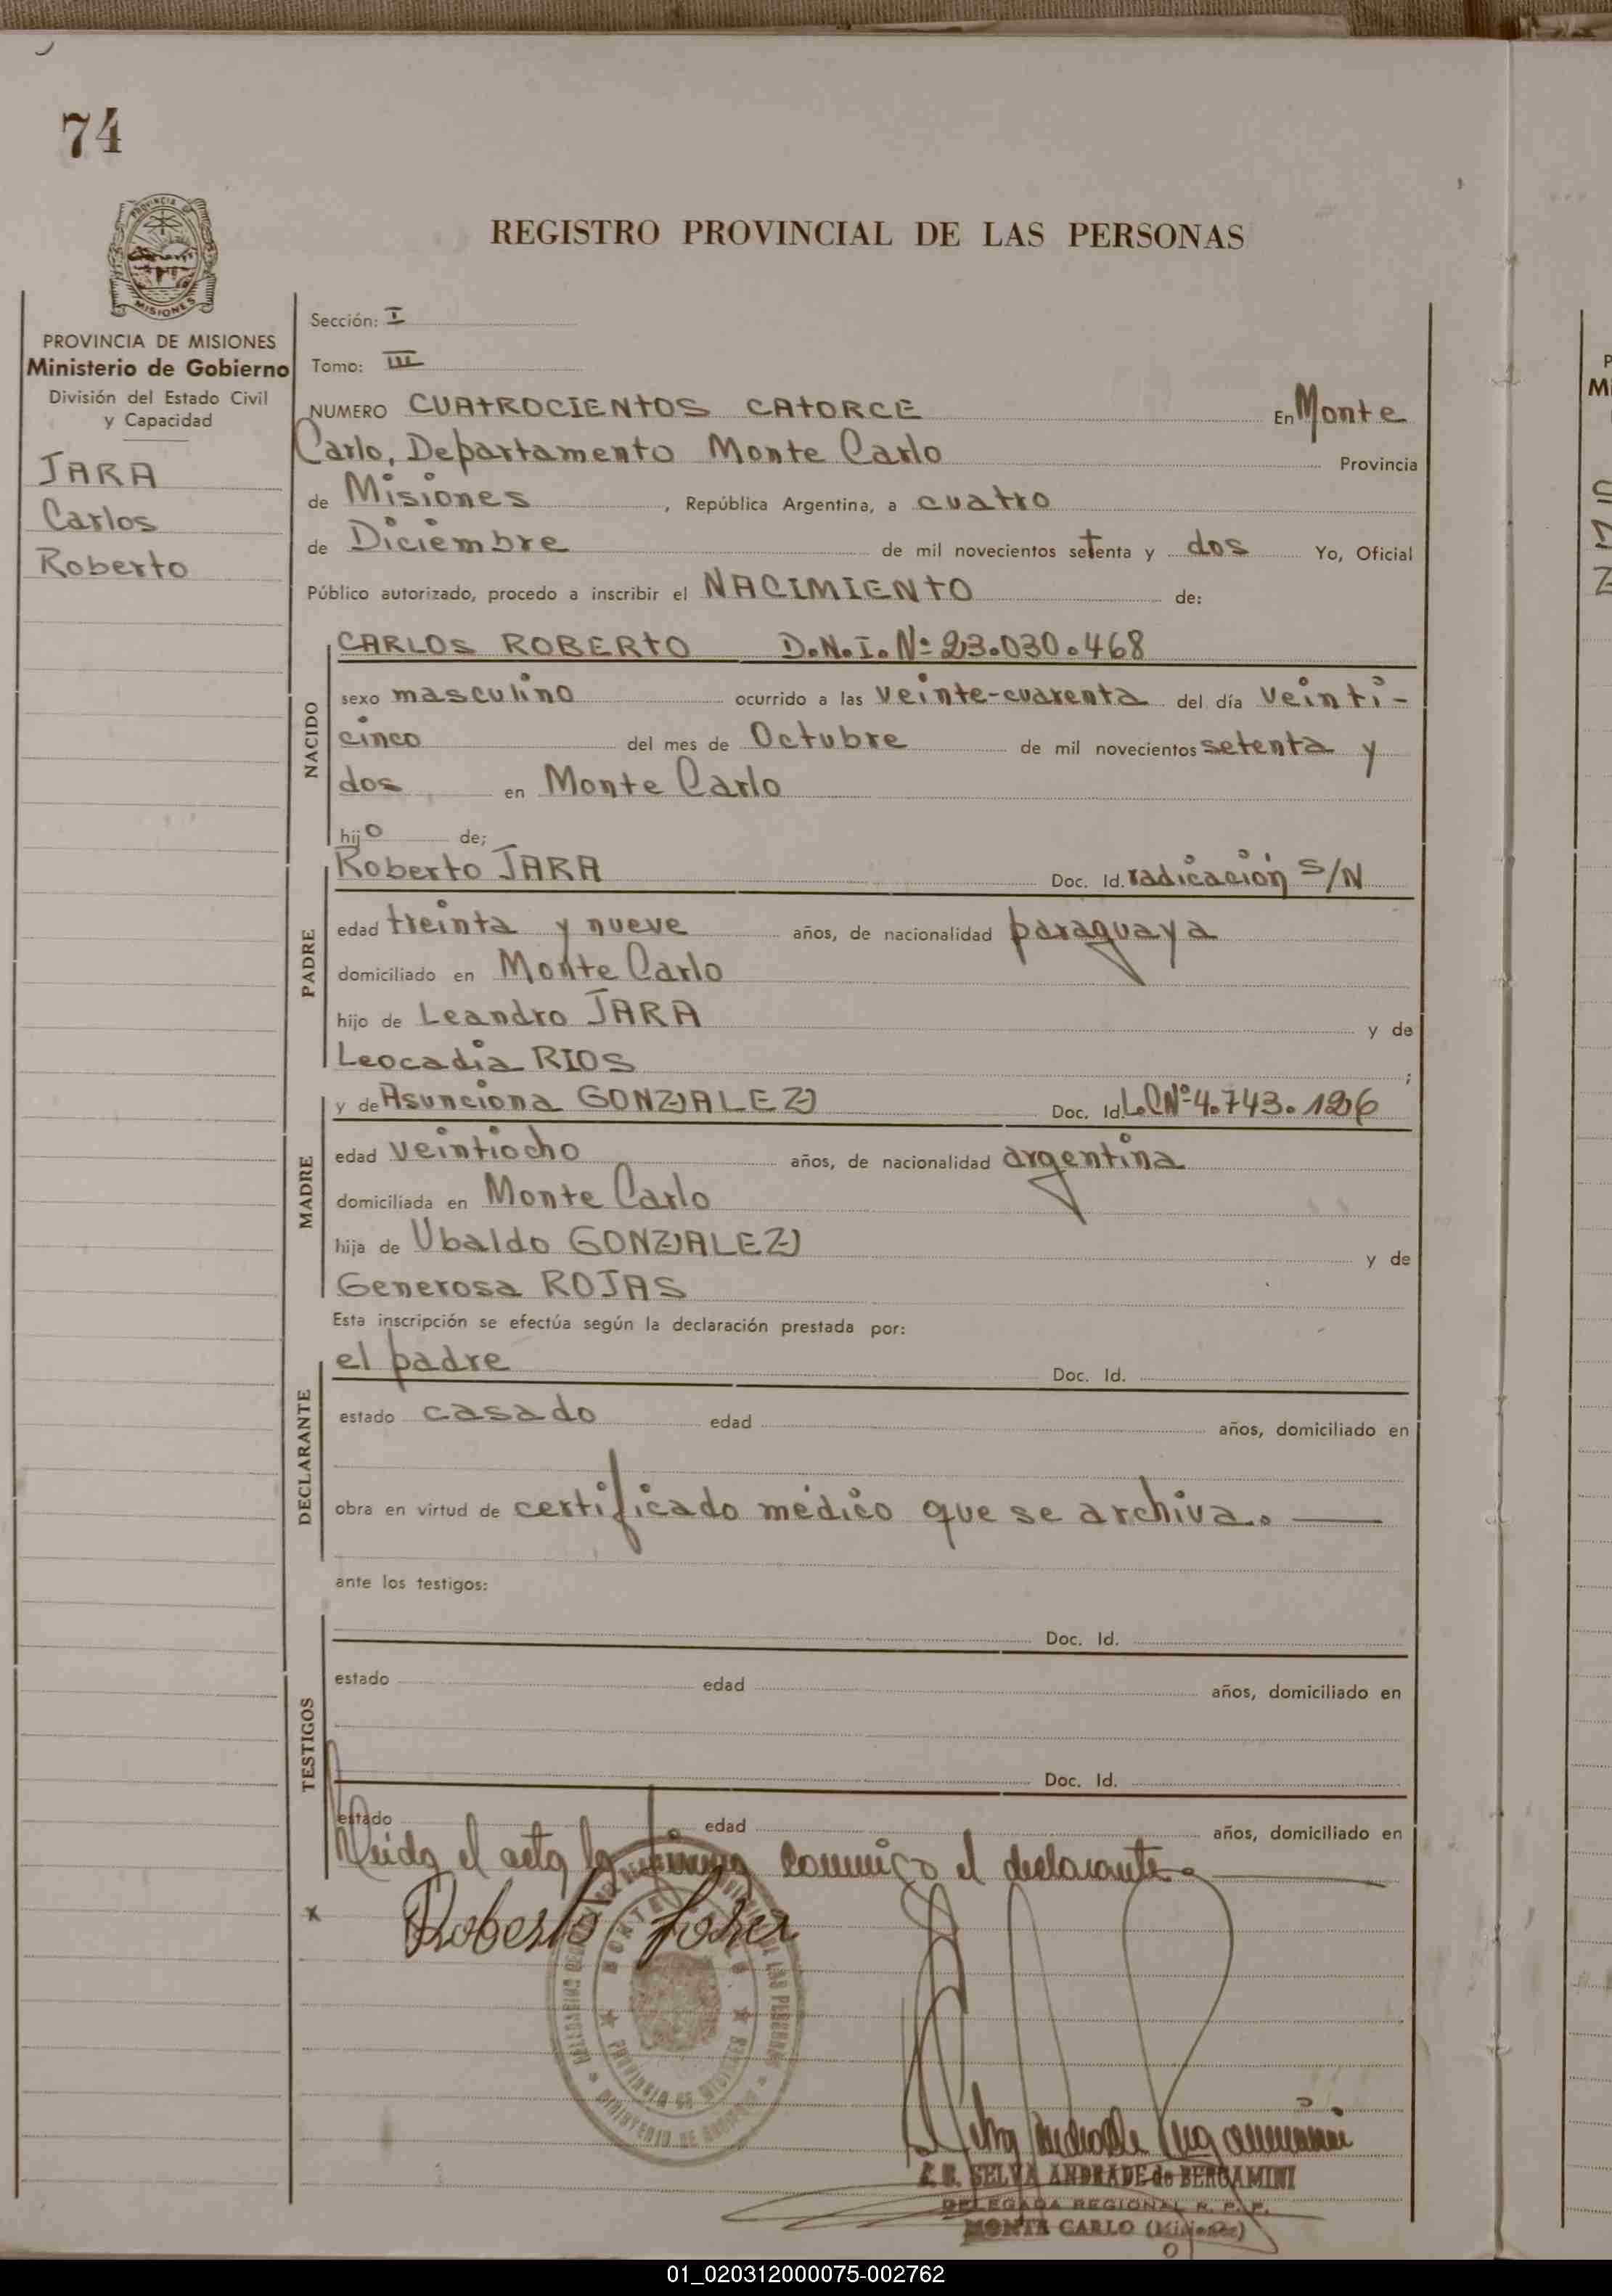 74
PROVINCIA DE
MISIONES
REGISTRO PROVINCIAL DE LAS PERSONAS
PROVINCIA DE MISIONES
Ministerio de Gobierno
División del Estado Civil
y Capacidad
JARA
Carlos
Roberto
Sección: I
Tomo: III
NUMERO CUATROCIENTOS CATORCE En Monte
Carlo, Departamento Monte Carlo Provincia
de Misiones, República Argentina, a cuatro
de Diciembre de mil novecientos setenta y dos Yo, Oficial
Público autorizado, procedo a inscribir el NACIMIENTO de:
NACIDO
CARLOS ROBERTO D.N.I. Nº 23.030.468
sexo masculino ocurrido a las veinte-cuarenta del día veinti-
cinco del mes de Octubre de mil novecientos setenta y
dos en Monte Carlo
hijo de;
PADRE
Roberto JARA Doc. Id. radicación S/N
edad treinta y nueve años, de nacionalidad paraguaya
domiciliado en Monte Carlo
hijo de Leandro JARA y de
Leocadia RIOS ;
MADRE
y de Asunciona GONZALEZ Doc. Id. L.C Nº 4.743.126
edad veintiocho años, de nacionalidad argentina
domiciliada en Monte Carlo
hija de Ubaldo GONZALEZ y de
Generosa ROJAS
Esta inscripción se efectúa según la declaración prestada por:
DECLARANTE
el padre Doc. Id.
estado casado edad años, domiciliado en
obra en virtud de certificado médico que se archiva.
ante los testigos:
TESTIGOS
Doc. Id.
estado edad años, domiciliado en
Doc. Id.
estado edad años, domiciliado en
Leida el acta la firma conmigo el declarante.
x Roberto Jara
PROVINCIA DE MISIONES
MINISTERIO DE GOBIERNO
SELVA ANDRADE de BERGAMINI
DELEGADA REGIONAL R. P. P.
MONTE CARLO (Misiones)
01_020312000075-002762